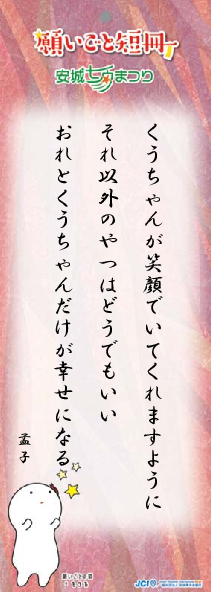 願いごと短冊
安城七夕まつり
くうちゃんが笑顔でいてくれますように
それ以外のやつはどうでもいい
おれとくうちゃんだけが幸せになる
孟子
JCI